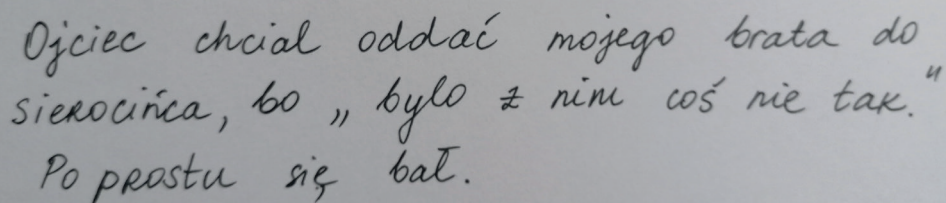 Ojciec chciał oddać mojego brata do
sierocińca, bo „było z nim coś nie tak."
Po prostu się bał.